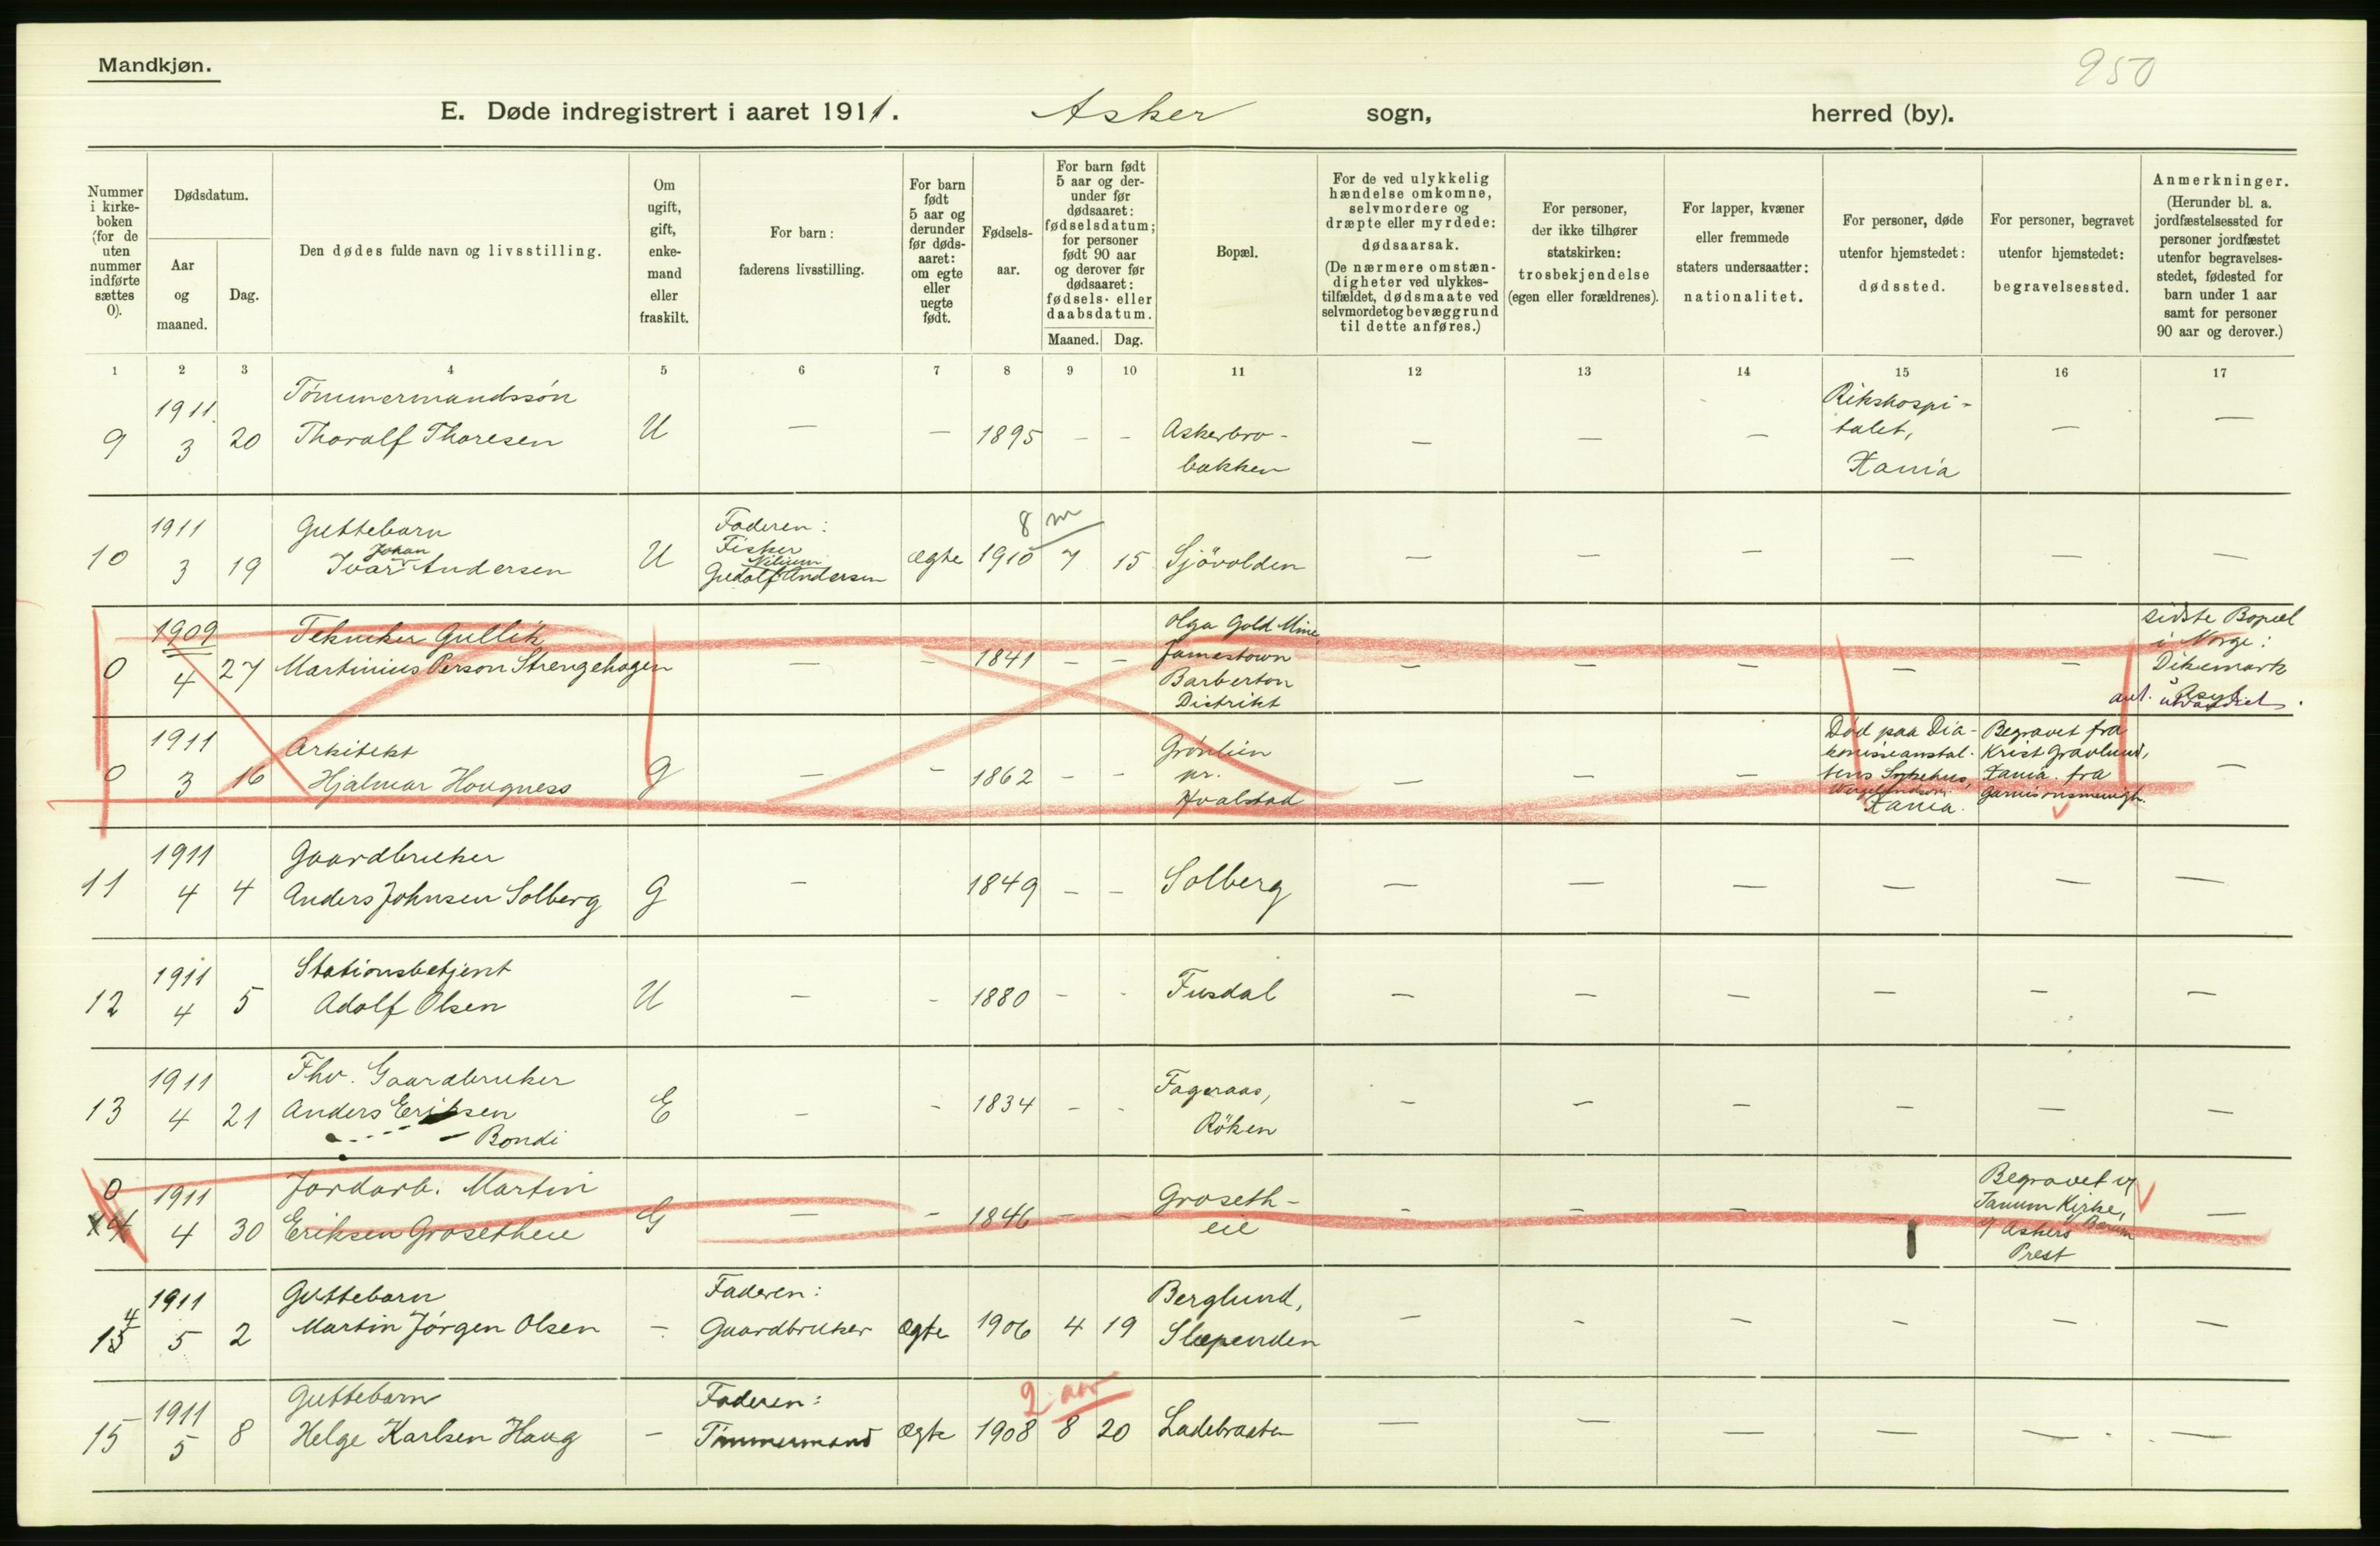 Mandkjøn.
950
E. Døde indregistrert i aaret 1911. Asker sogn, herred (by).
Nummer i kirke-boken (for de uten nummer indførte sættes 0).
Dødsdatum.
Aar og maaned.
Dag.
Den dødes fulde navn og livsstilling.
Om ugift, gift, enke-mand eller fraskilt.
For barn: faderens livsstilling.
For barn født 5 aar og derunder før døds-aaret: om egte eller uegte født.
Fødsels-aar.
For barn født 5 aar og der-under før dødsaaret: fødselsdatum; for personer født 90 aar og derover før dødsaaret: fødsels- eller daabsdatum.
Maaned. Dag.
Bopæl.
For de ved ulykkelig hændelse omkomne, selvmordere og dræpte eller myrdede: dødsaarsak. (De nærmere omstæn-digheter ved ulykkes-tilfældet, dødsmaate ved selvmordet og bevæggrund til dette anføres.)
For personer, der ikke tilhører statskirken: trosbekjendelse (egen eller forældrenes).
For lapper, kvæner eller fremmede staters undersaatter: nationalitet.
For personer, døde utenfor hjemstedet: dødssted.
For personer, begravet utenfor hjemstedet: begravelsessted.
Anmerkninger. (Herunder bl. a. jordfæstelsessted for personer jordfæstet utenfor begravelses-stedet, fødested for barn under 1 aar samt for personer 90 aar og derover.)
1 2 3 4 5 6 7 8 9 10 11 12 13 14 15 16 17
9 1911 3 20 Tömmermandssön Thoralf Thoresen U — — 1895 - - Askerbro-bakken — — — Rikshospi-talet, Xania — —
8 m
10 1911 3 19 Guttebarn Ivar Johan Andersen U Faderen: Fisker Gudolf Andersen Ægte 1910 7 15 Sjövolden — — — — — —
0 1909 4 27 Tekniker Gullik Martinius Person Strengehagen — - 1841 - - Olga Gold Mine Jamestown Barberton Distrikt — — — — — sidste Bopæl i Norge: Dikemark Asyl
0 1911 3 16 Arkitekt Hjalmar Hougness G — - 1862 - - Grönlien pr. Hvalstad — — — Död paa Dia-konisseanstal-tens Sykehus, Xania. Begravet fra Krist Gravlund, Xania. fra Garnisonsmenigh. —
11 1911 4 4 Gaardbruker Anders Johnsen Solberg G — 1849 - - Solberg — — — — — —
12 1911 4 5 Stationsbetjent Adolf Olsen U — - 1880 - - Fusdal — — — — — —
13 1911 4 21 Fhv. Gaardbruker Anders Eriksen Bondi E — - 1834 - - Fageraas, Röken — — — — — —
0 14 1911 4 30 Jordarb. Martin Eriksen Grosetheie G — - 1846 - - Groseth-eie - — — Begravet v/ Tanum Kirke, Bærum af Askers Prest —
4 15 1911 5 2 Guttebarn Martin Jörgen Olsen — Faderen: Gaardbruker Ægte 1906 4 19 Berglund, Slependen — - — — — —
2 aar
15 1911 5 8 Guttebarn Helge Karlsen Haug — Faderen: Tömmermand Ægte 1908 8 20 Ladebraaten — — — — — —